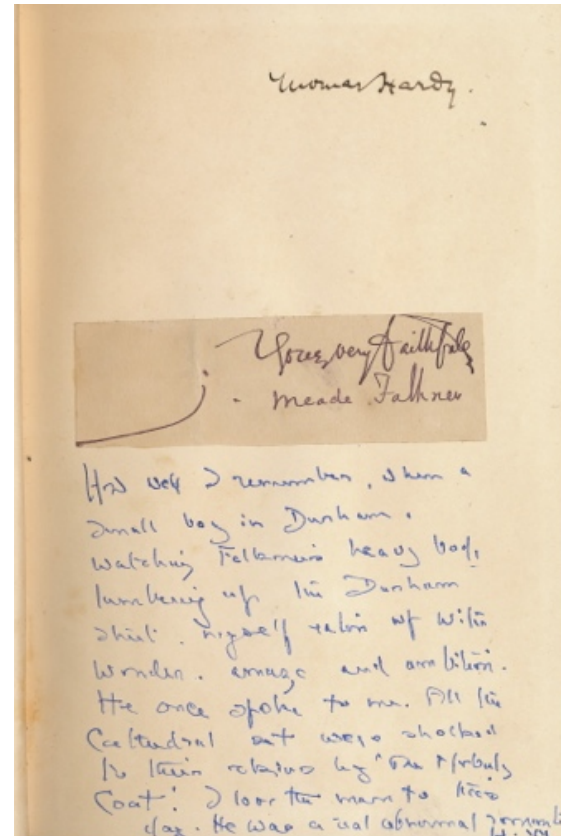 Thomas Hardy.
Yours very faithfully
J. Meade Falkner
How well I remember, when a
small boy in Durham,
watching Falkner's heavy body
lumbering up the Durham
street. myself eaten up with
wonder. amaze and ambition.
He once spoke to me. All the
Cathedral set were shocked
to their by 'The Nebuly
Coat'. I love the man to this
day. He was a real abnormal